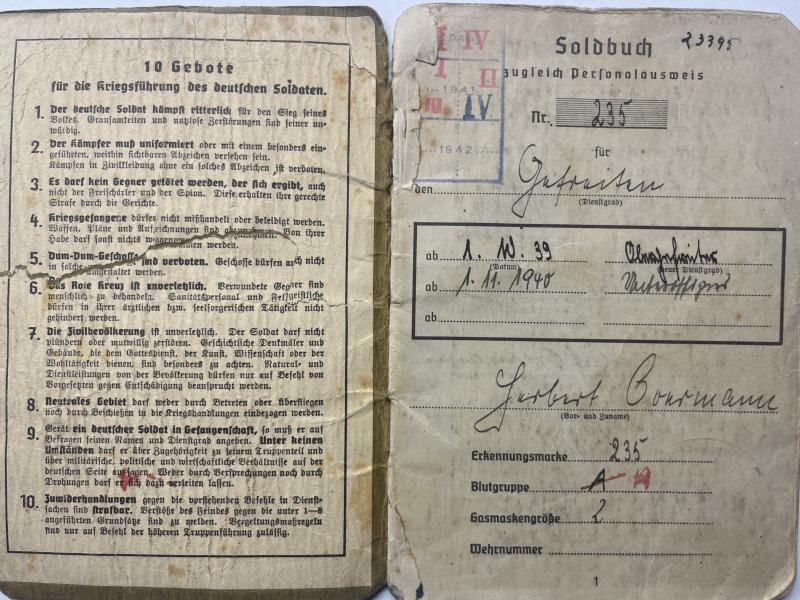 10 Gebote
für die Kriegsführung des deutschen Soldaten.
1. Der deutsche Soldat kämpft ritterlich für den Sieg seines
Volkes. Grausamkeiten und nutzlose Zerstörungen sind seiner un-
würdig.
2. Der Kämpfer muß uniformiert oder mit einem besonders ein-
geführten, weithin sichtbaren Abzeichen versehen sein.
Kämpfen in Zivilkleidung ohne ein solches Abzeichen ist verboten.
3. Es darf kein Gegner getötet werden, der sich ergibt, auch
nicht der Freischärler und der Spion. Diese erhalten ihre gerechte
Strafe durch die Gerichte.
4. Kriegsgefangene dürfen nicht mißhandelt oder beleidigt werden.
Waffen, Pläne und Aufzeichnungen sind abzunehmen. Von ihrer
Habe darf sonst nichts weggenommen werden.
5. Dum-Dum-Geschosse sind verboten. Geschosse dürfen auch nicht
in solche umgestaltet werden.
6. Das Rote Kreuz ist unverletzlich. Verwundete Gegner sind
menschlich zu behandeln. Sanitätspersonal und Feldgeistliche
dürfen in ihrer ärztlichen bzw. seelsorgerischen Tätigkeit nicht
gehindert werden.
7. Die Zivilbevölkerung ist unverletzlich. Der Soldat darf nicht
plündern oder mutwillig zerstören. Geschichtliche Denkmäler und
Gebäude, die dem Gottesdienst, der Kunst, Wissenschaft oder der
Wohltätigkeit dienen, sind besonders zu achten. Natural- und
Dienstleistungen von der Bevölkerung dürfen nur auf Befehl von
Vorgesetzten gegen Entschädigung beansprucht werden.
8. Neutrales Gebiet darf weder durch Betreten oder Überfliegen
noch durch Beschießen in die Kriegshandlungen einbezogen werden.
9. Gerät ein deutscher Soldat in Gefangenschaft, so muß er auf
Befragen seinen Namen und Dienstgrad angeben. Unter keinen
Umständen darf er über Zugehörigkeit zu seinem Truppenteil und
über militärische, politische und wirtschaftliche Verhältnisse auf der
deutschen Seite aussagen. Weder durch Versprechungen noch durch
Drohungen darf er sich dazu verleiten lassen.
10. Zuwiderhandlungen gegen die vorstehenden Befehle in Dienst-
sachen sind strafbar. Verstöße des Feindes gegen die unter 1—8
angeführten Grundsätze sind zu melden. Vergeltungsmaßregeln
sind nur auf Befehl der höheren Truppenführung zulässig.
Soldbuch 23395
zugleich Personalausweis
IV
II
1941
IV
1942
Nr. 235
für
den Gefreiten
(Dienstgrad)
ab 1. 10. 39 Obergefreiter
(Datum) (neuer Dienstgrad)
ab 1. 11. 1940 Unteroffizier
ab
Herbert Boermann
(Vor- und Zuname)
Erkennungsmarke 235
Blutgruppe A A
Gasmaskengröße 2
Wehrnummer
1